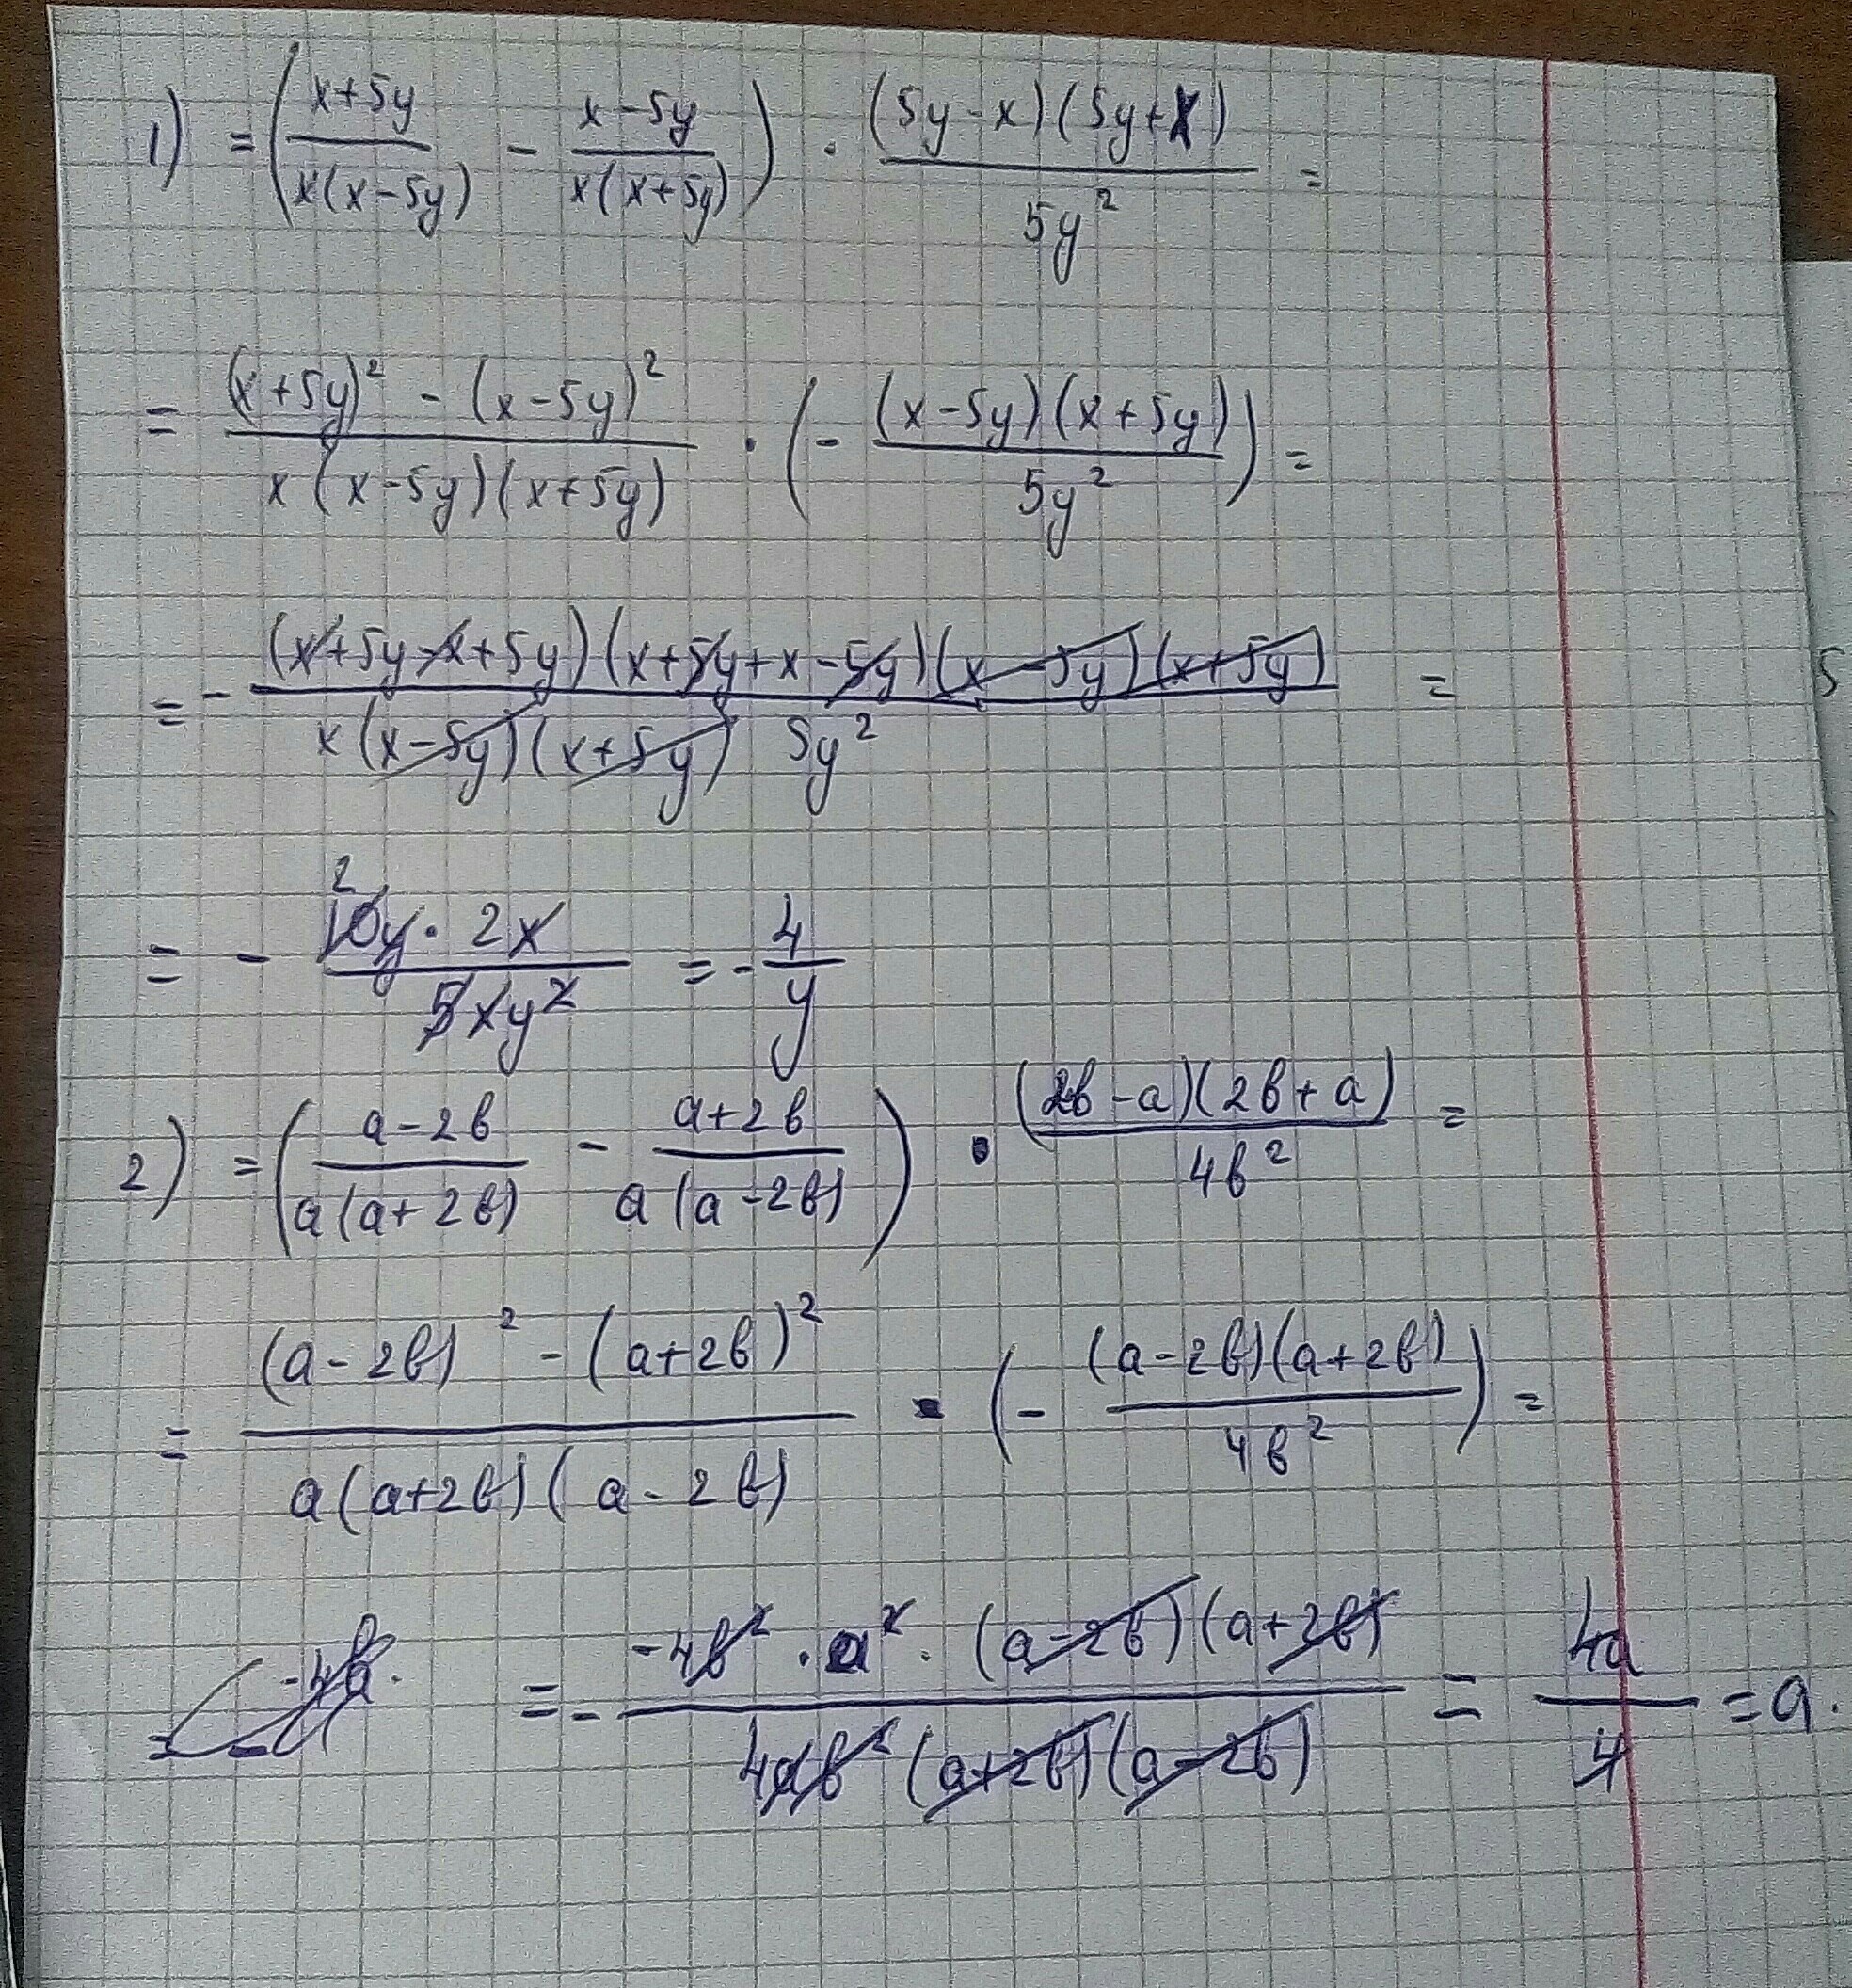 1) = ( (x+5y)/(x(x-5y)) - (x-5y)/(x(x+5y)) ) · ((5y-x)(5y+x))/(5y²) =
= ((x+5y)² - (x-5y)²)/(x(x-5y)(x+5y)) · (- ((x-5y)(x+5y))/(5y²)) =
= - ((x+5y-x+5y)(x+5y+x-5y)(x-5y)(x+5y))/(x(x-5y)(x+5y) 5y²) =
= - (10y · 2x)/(5xy²) = - 4/y
2) = ( (a-2b)/(a(a+2b)) - (a+2b)/(a(a-2b)) ) · ((2b-a)(2b+a))/(4b²) =
= ((a-2b)² - (a+2b)²)/(a(a+2b)(a-2b)) · (- ((a-2b)(a+2b))/(4b²)) =
= - (-4b² · a² · (a-2b)(a+2b))/(4ab²(a+2b)(a-2b)) = 4a/4 = a.